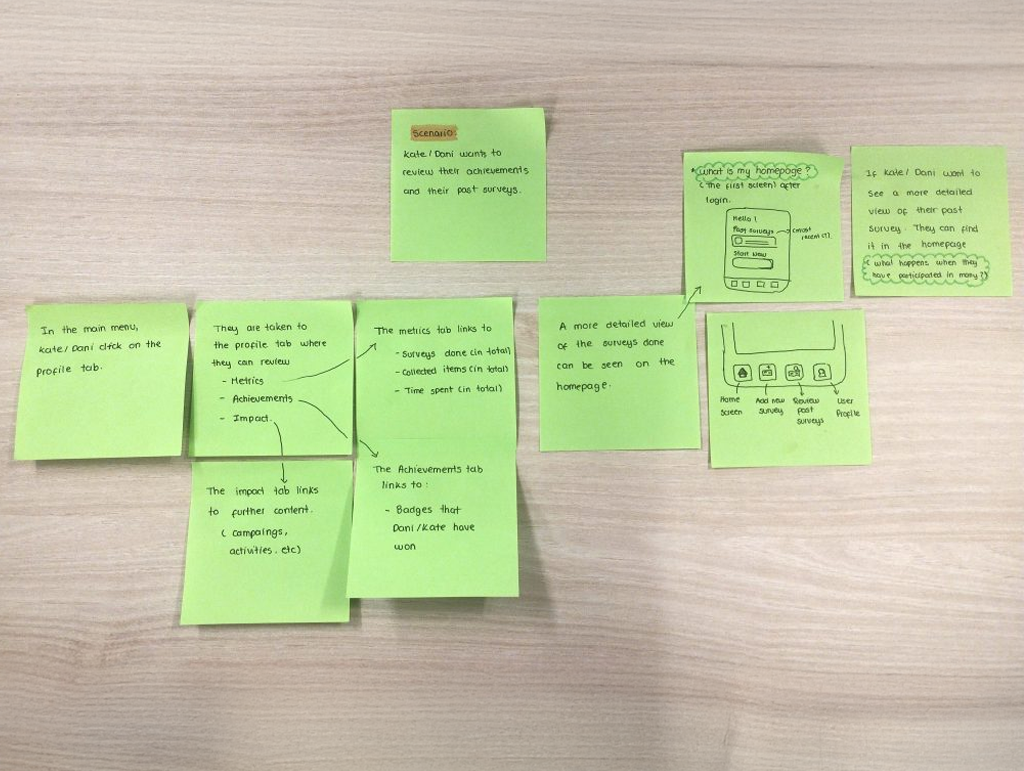 Scenario:
Kate/Dani wants to
review their achievements
and their past surveys.
In the main menu,
Kate/Dani click on the
profile tab.
They are taken to
the profile tab where
they can review
- Metrics
- Achievements
- Impact.
The metrics tab links to
- Surveys done (in total)
- Collected items (in total)
- Time spent (in total)
The impact tab links
to further content.
( campaings,
activities. etc)
The Achievements tab
links to:
- Badges that
Dani/Kate have
won
A more detailed view
of the surveys done
can be seen on the
homepage.
* what is my homepage?
(the first screen) after
login.
Hello!
Past surveys
(most
recent (?)
Start New
Home
Screen
Add new
survey
Review
past
surveys
User
Profile
If Kate/Dani want to
see a more detailed
view of their past
survey. They can find
it in the homepage
(what happens when they
have participated in many?)